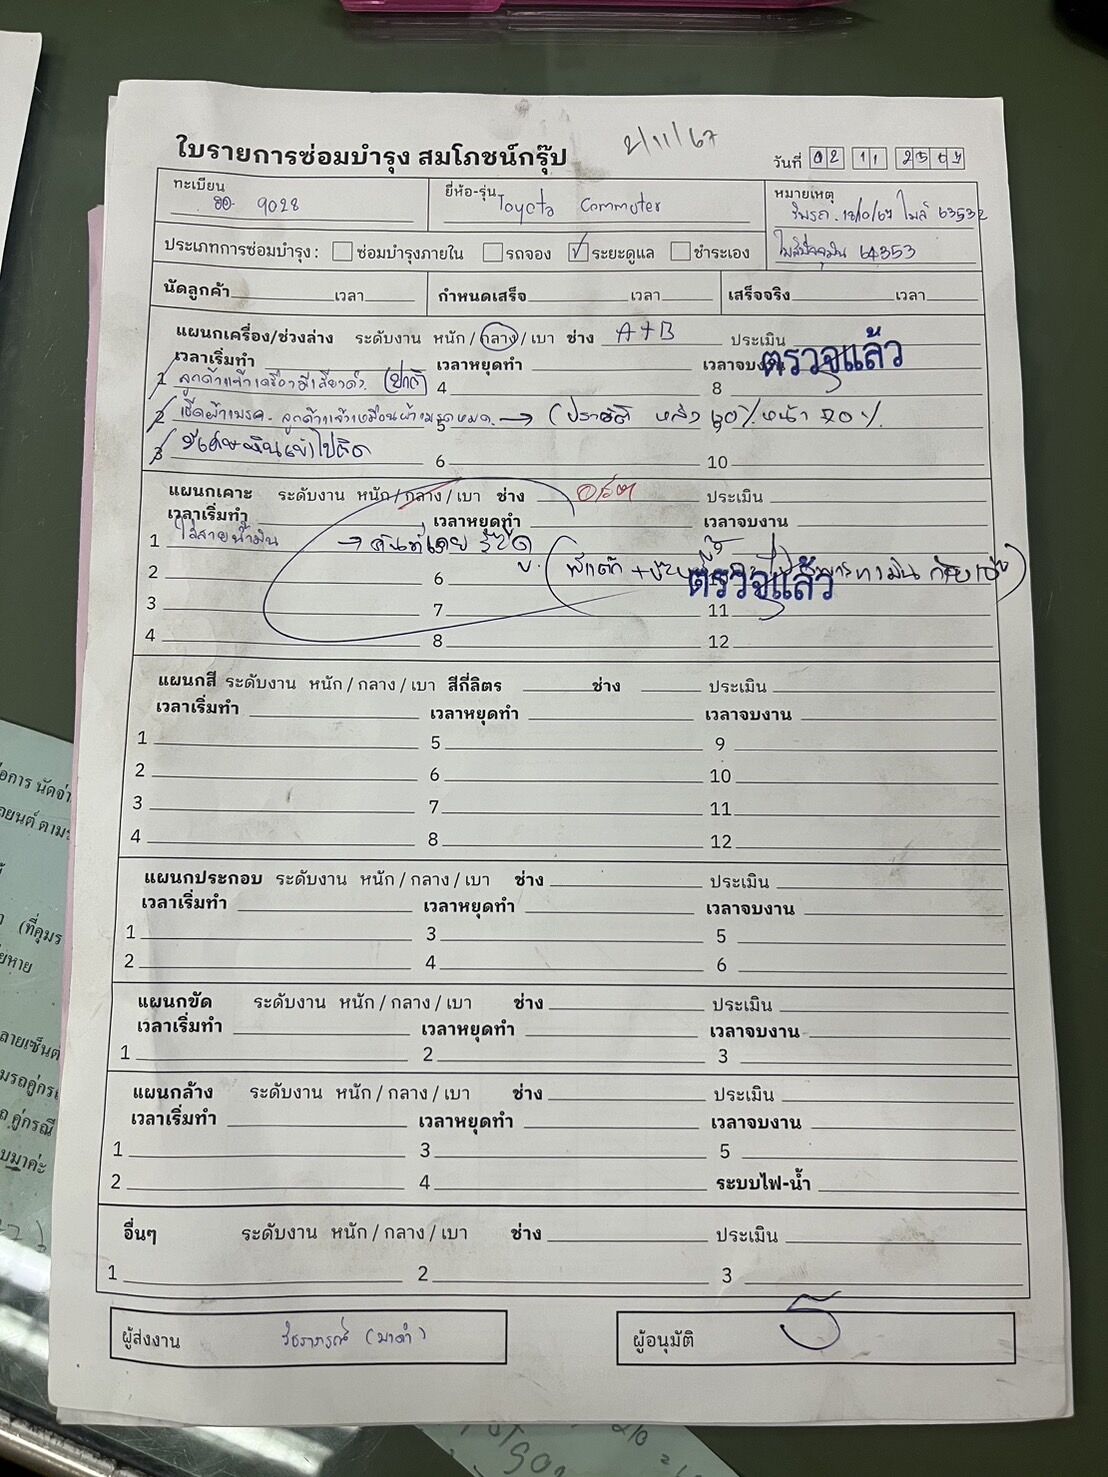 2/11/67
ใบรายการซ่อมบำรุง สมโภชน์กรุ๊ป
วันที่ 02 11 2567
ทะเบียน ฮอ. 9028
ยี่ห้อ-รุ่น Toyota Commuter
หมายเหตุ
ไมล์ 63532
ไมล์ปัจจุบัน 64353
ประเภทการซ่อมบำรุง : ซ่อมบำรุงภายใน รถจอง ✓ ระยะดูแล ชำระเอง
นัดลูกค้า เวลา กำหนดเสร็จ เวลา เสร็จจริง เวลา
แผนกเครื่อง/ช่วงล่าง ระดับงาน หนัก / กลาง / เบา ช่าง A+B ประเมิน
เวลาเริ่มทำ เวลาหยุดทำ เวลาจบงาน
ตรวจแล้ว
1 ลูกค้าแจ้งเครื่องมีเสียงดัง (ปกติ) 4 8
2 เช็คผ้าเบรค ลูกค้าแจ้งเหมือนผ้าเบรคหมด → 5 หลัง 60% หน้า 20% 9
3 6 10
แผนกเคาะ ระดับงาน หนัก / กลาง / เบา ช่าง ประเมิน
เวลาเริ่มทำ เวลาหยุดทำ เวลาจบงาน
1 ใส่สายน้ำมัน → 5 9
2 6
ตรวจแล้ว
3 7 11
4 8 12
แผนกสี ระดับงาน หนัก / กลาง / เบา สีกี่ลิตร ช่าง ประเมิน
เวลาเริ่มทำ เวลาหยุดทำ เวลาจบงาน
1 5 9
2 6 10
3 7 11
4 8 12
แผนกประกอบ ระดับงาน หนัก / กลาง / เบา ช่าง ประเมิน
เวลาเริ่มทำ เวลาหยุดทำ เวลาจบงาน
1 3 5
2 4 6
แผนกขัด ระดับงาน หนัก / กลาง / เบา ช่าง ประเมิน
เวลาเริ่มทำ เวลาหยุดทำ เวลาจบงาน
1 2 3
แผนกล้าง ระดับงาน หนัก / กลาง / เบา ช่าง ประเมิน
เวลาเริ่มทำ เวลาหยุดทำ เวลาจบงาน
1 3 5
2 4 ระบบไฟ-น้ำ
อื่นๆ ระดับงาน หนัก / กลาง / เบา ช่าง ประเมิน
1 2 3
ผู้ส่งงาน
ผู้อนุมัติ